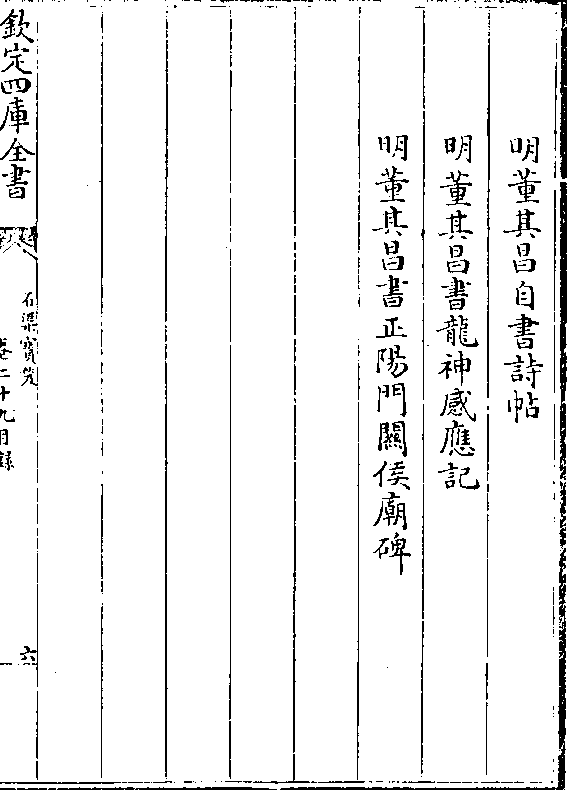 明董其昌自書詩帖
明董其昌書龍神感應記
明董其昌書正陽門關侯廟碑
欽定四庫全書
石渠寶笈
卷二十九目錄
六